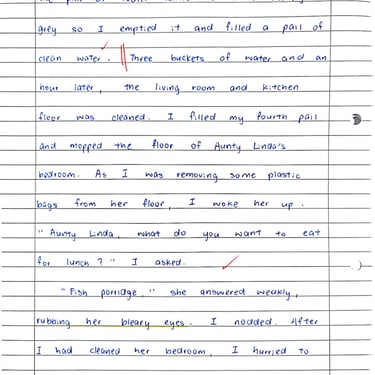 grey so I emptied it and filled a pail of
clean water. Three buckets of water and an
hour later, the living room and kitchen
floor was cleaned. I filled my fourth pail
and mopped the floor of Aunty Linda's
bedroom. As I was removing some plastic
bags from her floor, I woke her up.
"Aunty Linda, what do you want to eat
for lunch?" I asked.
"Fish porridge," she answered weakly,
rubbing her bleary eyes. I nodded. After
I had cleaned her bedroom, I hurried to